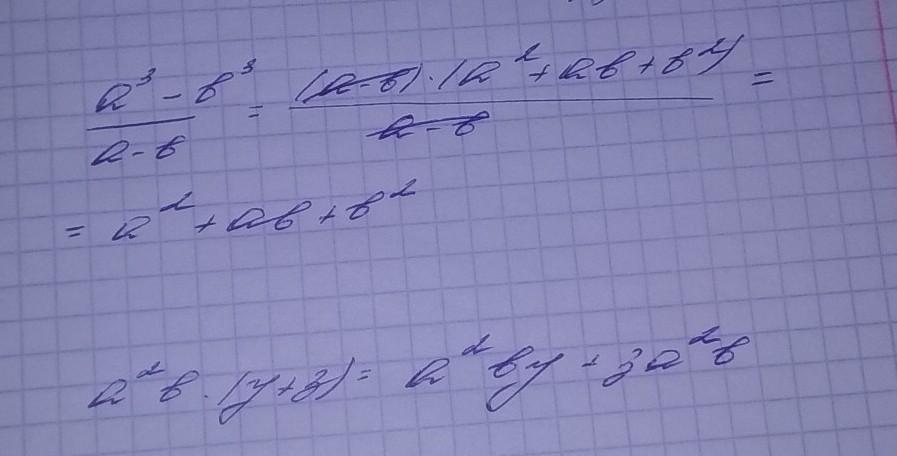 (a³ - b³)/(a - b) = ((a - b) · (a² + ab + b²))/(a - b) =
= a² + ab + b²
a²b · (y + 3) = a²by + 3a²b